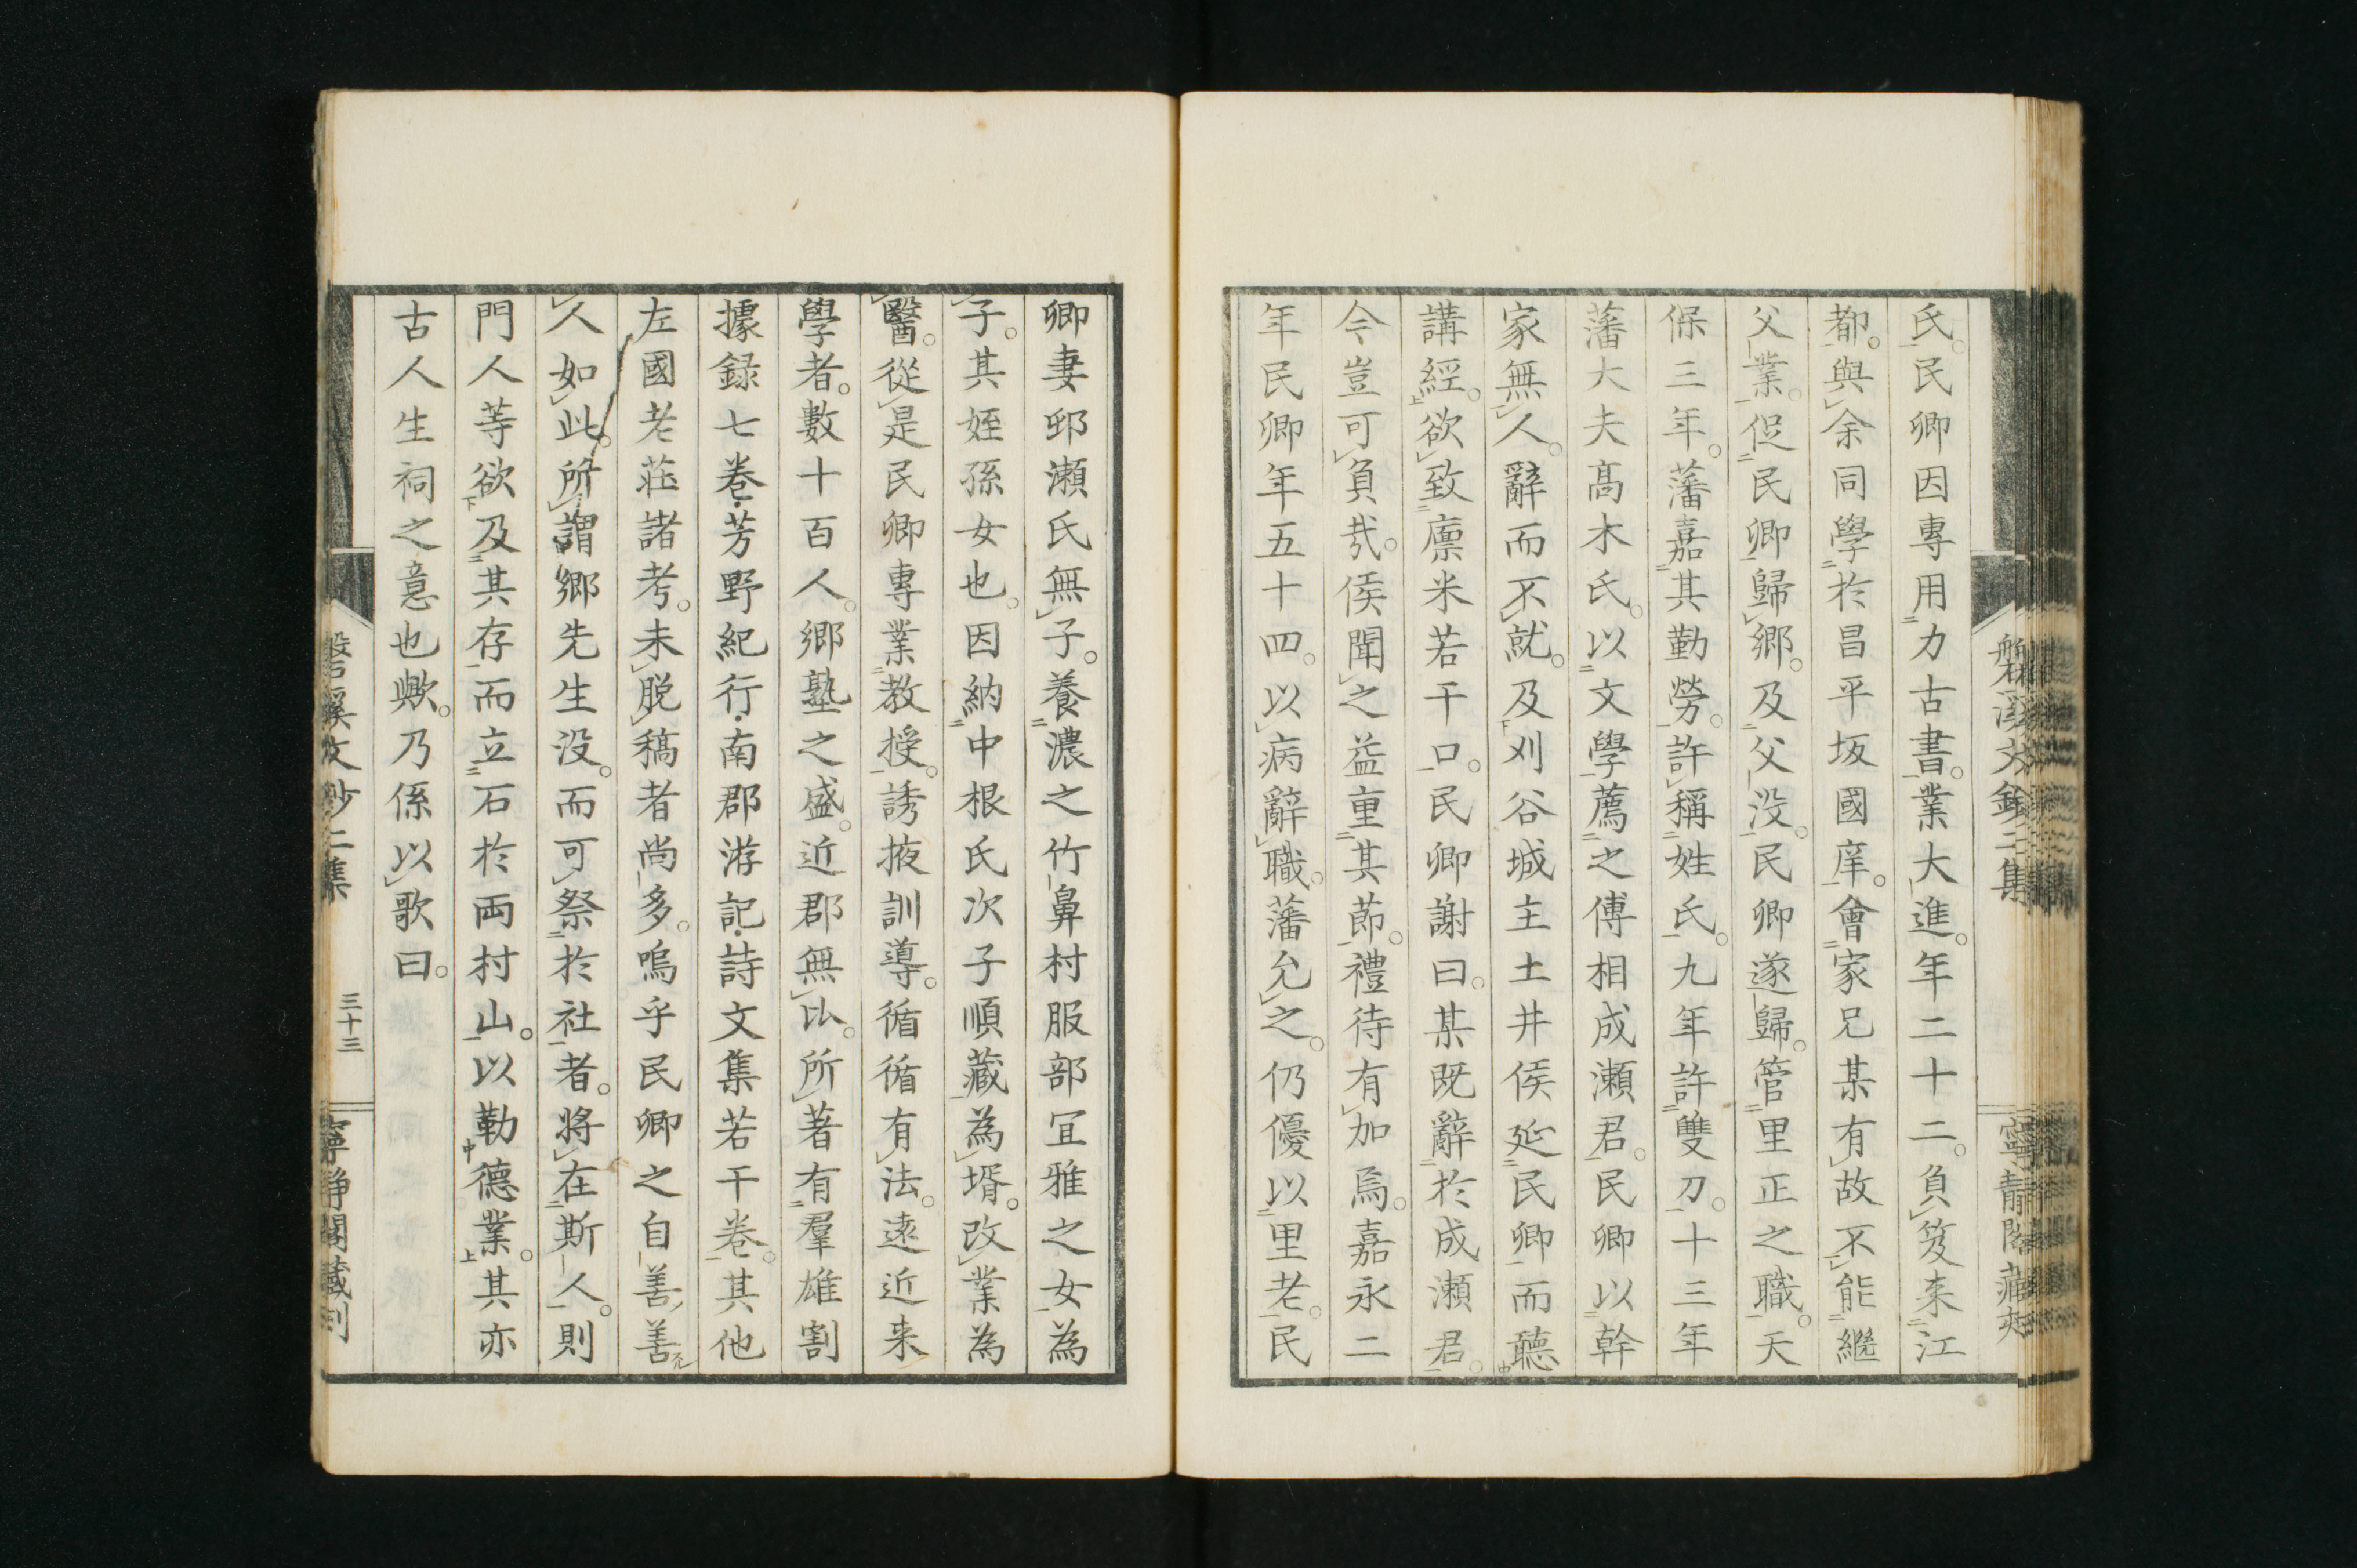 氏。民卿因專用力古書。業大進。年二十二。負笈来江
都。與余同學於昌平坂國庠。會家兄某有故不能繼
父業。促民卿歸鄉。及父没。民卿遂歸。管里正之職。天
保三年。藩嘉其勤勞。許稱姓氏。九年許雙刀。十三年
藩大夫髙木氏。以文學薦之傅相成瀨君。民卿以幹
家無人。辭而不就。及刈谷城主土井侯延民卿而聽
講經。欲致廪米若干口。民卿謝曰。某既辭於成瀨君。
今豈可負㢤。侯聞之益重其節。禮待有加焉。嘉永二
年民卿年五十四。以病辭職。藩允之。仍優以里老。民
卿妻邼瀨氏無子。養濃之竹鼻村服部宜雅之女為
子。其姪孫女也。因納中根氏次子順藏為壻。改業為
醫。從是民卿專業教授。誘掖訓導。循循有法。遠近来
學者。數十百人。鄉塾之盛。近郡無比。所著有羣雄割
據録七巻・芳野紀行・南郡游記・詩文集若干巻。其他
左國老莊諸考。未脱稿者尚多。嗚乎民卿之自善善
人如此。所謂鄉先生没。而可祭於社者。將在斯人。則
門人等欲及其存而立石於両村山。以勒德業。其亦
古人生祠之意也歟。乃係以歌曰。
磐溪文鈔二集
三十三
寧靜閣藏刻